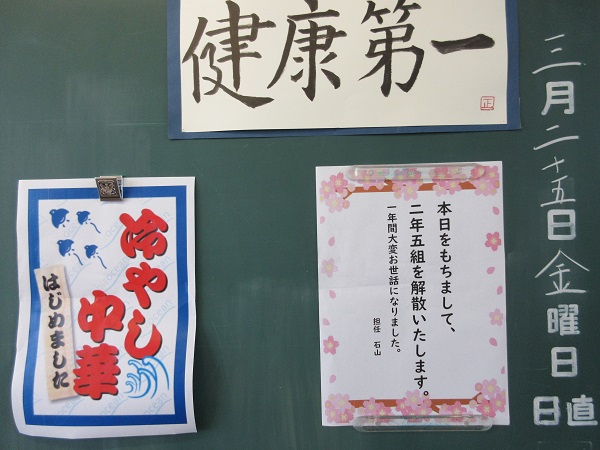 健康第一
正
三月二十五日金曜日
日直
本日をもちまして、
二年五組を解散いたします。
一年間大変お世話になりました。
担任 石山
冷やし
中華
はじめました